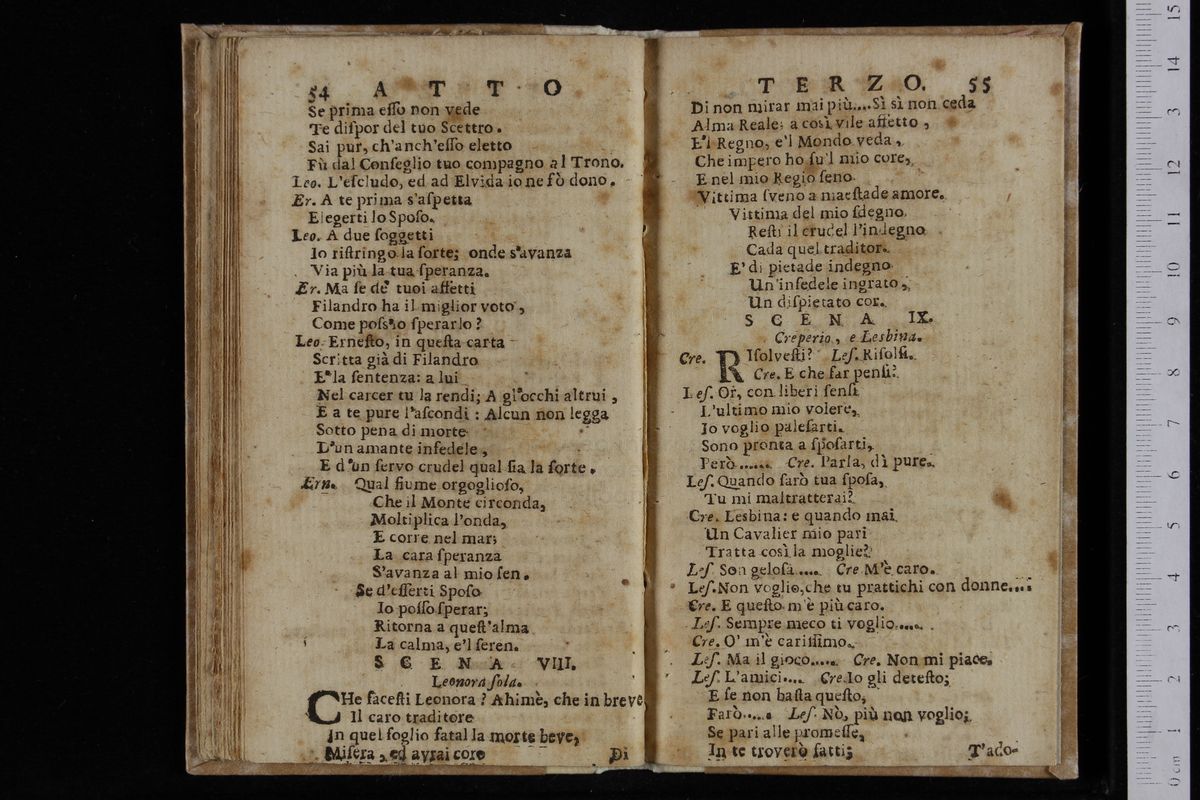 54 A T T O
Se prima eſſo non vede
Te diſpor del tuo Scettro.
Sai pur, ch'anch'eſſo eletto
Fù dal Conſeglio tuo compagno al Trono.
Leo. L'eſcludo, ed ad Elvida io ne fò dono.
Er. A te prima s'aſpetta
Elegerti lo Spoſo.
Leo. A due ſoggetti
Io riſtringo la ſorte; onde s'avanza
Via più la tua ſperanza.
Er. Ma ſe de' tuoi affetti
Filandro ha il miglior voto,
Come poſs'io ſperarlo?
Leo. Erneſto, in queſta carta
Scritta già di Filandro
E' la ſentenza: a lui
Nel carcer tu la rendi; A gl'occhi altrui,
E a te pure l'aſcondi: Alcun non legga
Sotto pena di morte
D'un amante infedele,
E d'un ſervo crudel qual ſia la ſorte.
Ern. Qual fiume orgoglioſo,
Che il Monte circonda,
Moltiplica l'onda,
E corre nel mar;
La cara ſperanza
S'avanza al mio ſen.
Se d'eſſerti Spoſo
Io poſſo ſperar;
Ritorna a queſt'alma
La calma, e'l ſeren.
S C E N A VIII.
Leonora ſola.
CHe faceſti Leonora? Ahimè, che in breve
Il caro traditore
In quel foglio fatal la morte beve,
Miſera, ed avrai core
Di
T E R Z O. 55
Di non mirar mai più....Sì sì non ceda
Alma Reale a così vile affetto,
E'l Regno, e'l Mondo veda,
Che impero ho ſu'l mio core,
E nel mio Regio ſeno
Vittima ſveno a maeſtade amore.
Vittima del mio ſdegno
Reſti il crudel l'indegno
Cada quel traditor.
E' di pietade indegno
Un'infedele ingrato,
Un diſpietato cor.
S C E N A IX.
Creperio, e Lesbina.
Cre. RIſolveſti? Leſ. Riſolſi.
Cre. E che far penſi?
Leſ. Or, con liberi ſenſi
L'ultimo mio volere,
Io voglio paleſarti.
Sono pronta a ſpoſarti,
Però...... Cre. Parla, dì pure.
Leſ. Quando ſarò tua ſpoſa,
Tu mi maltratterai?
Cre. Lesbina: e quando mai
Un Cavalier mio pari
Tratta così la moglie?
Leſ. Son geloſa.... Cre M'è caro.
Leſ. Non voglio, che tu prattichi con donne....
Cre. E queſto m'è più caro.
Leſ. Sempre meco ti voglio.....
Cre. O' m'è cariſſimo.
Leſ. Ma il gioco..... Cre. Non mi piace.
Leſ. L'amici.... Cre. Io gli deteſto;
E ſe non baſta queſto,
Farò..... Leſ. Nò, più non voglio;
Se pari alle promeſſe,
In te troverò fatti;
T'ado-